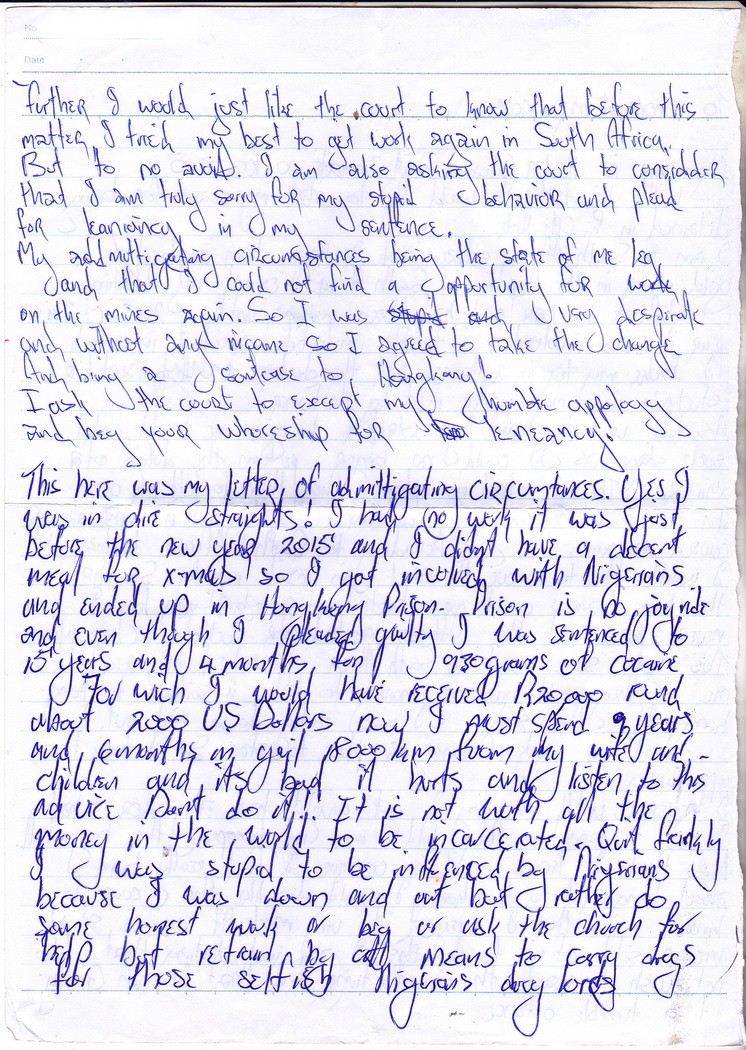 No.
Date
Further I would just like the court to know that before this
matter I tried my best to get work again in South Africa.
But to no avail. I am also asking the court to considder
that I am truly sorry for my stupid behavior and plead
for leaniancy in my sentence.
My addmittigating circumstances being the state of me leg
and that I could not find opportunity for work
on the mines again. So I was stupid and very desperate
and without any income so I agreed to take the change
And bring a suitcase to Hongkong!
I ask the court to except my humble appology
and beg your whoreship for leneancy!
This here was my letter of admittigating circumtances. Yes I
was in dire straights! I had no work it was just
before the new year 2015 and I didn't have a decent
meal for x-mas so I got involved with Nigerians
and ended up in Hongkong Prison. Prison is no joyride
and even though I pleaded guilty I was sentenced to
15 years and 4 months, for 930 grams of cocaine
For wich I would have received R20000 round
about 2000 US Dollars now I must spend 9 years
and 6 months in gail 18000 km from my wife and
children and its bad it hurts and listen to this
advice Don't do it! It is not worth all the
money in the world to be incarcerated. Quit frankly
I was stupid to be influenced by Nigerians
because I was down and out but rather do
some honest work or beg or ask the church for
help but refrain by all means to carry drugs
for those selfish Nigerians drug lords